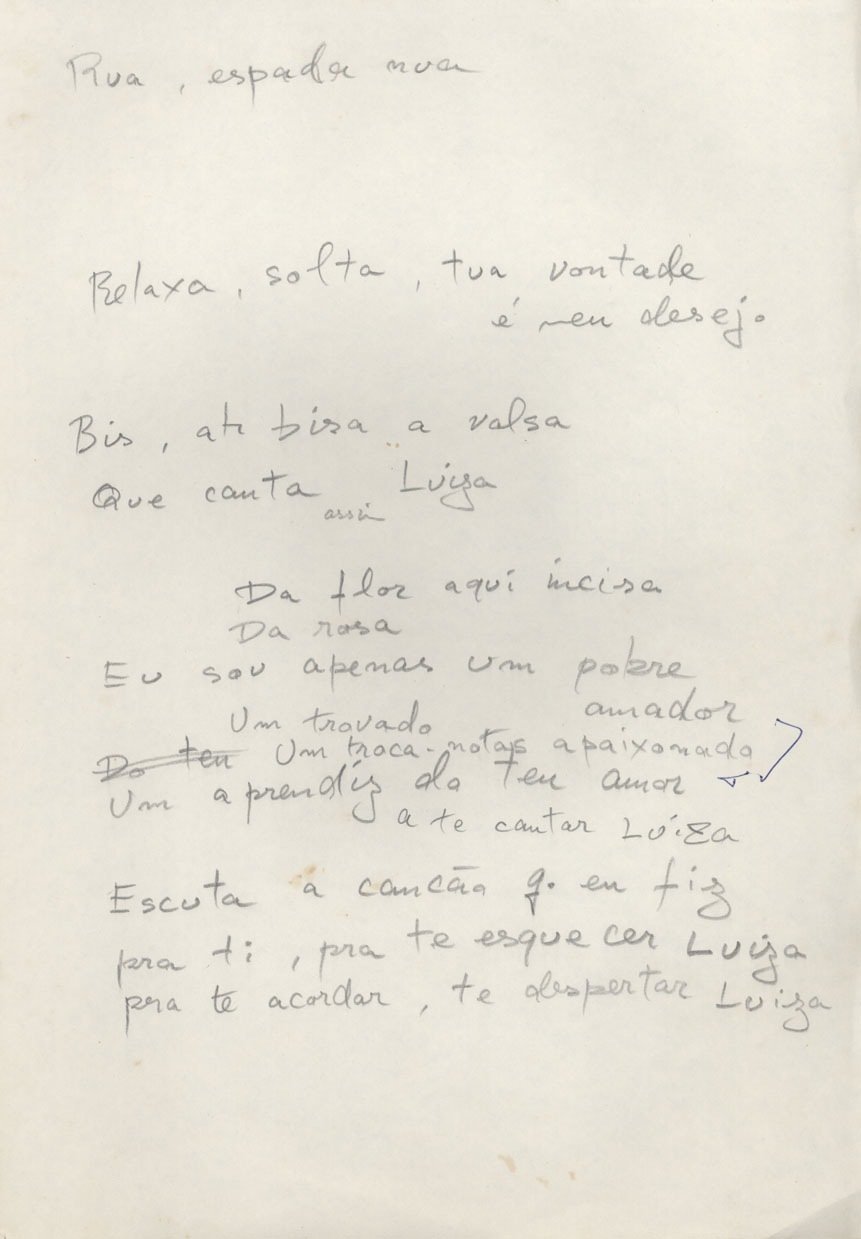 Rua, espada nua
Relaxa, solta, tua vontade
é meu desejo
Bis, ati bisa a valsa
Que canta assim Luiza
Da flor aqui incisa
Da rosa
Eu sou apenas um pobre
amador
Um trovado
Do teu Um troca-notas apaixonado
Um aprendiz do teu amor
a te cantar Luiza
Escuta a canção q. eu fiz
pra ti, pra te esquecer Luiza
pra te acordar, te despertar Luiza